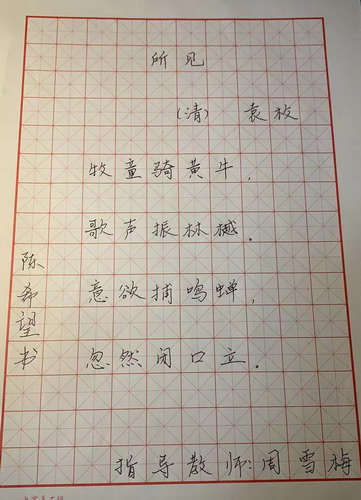 所见
(清) 袁枚
牧童骑黄牛,
歌声振林樾。
意欲捕鸣蝉,
忽然闭口立。
陈希望书
指导教师:周雪梅